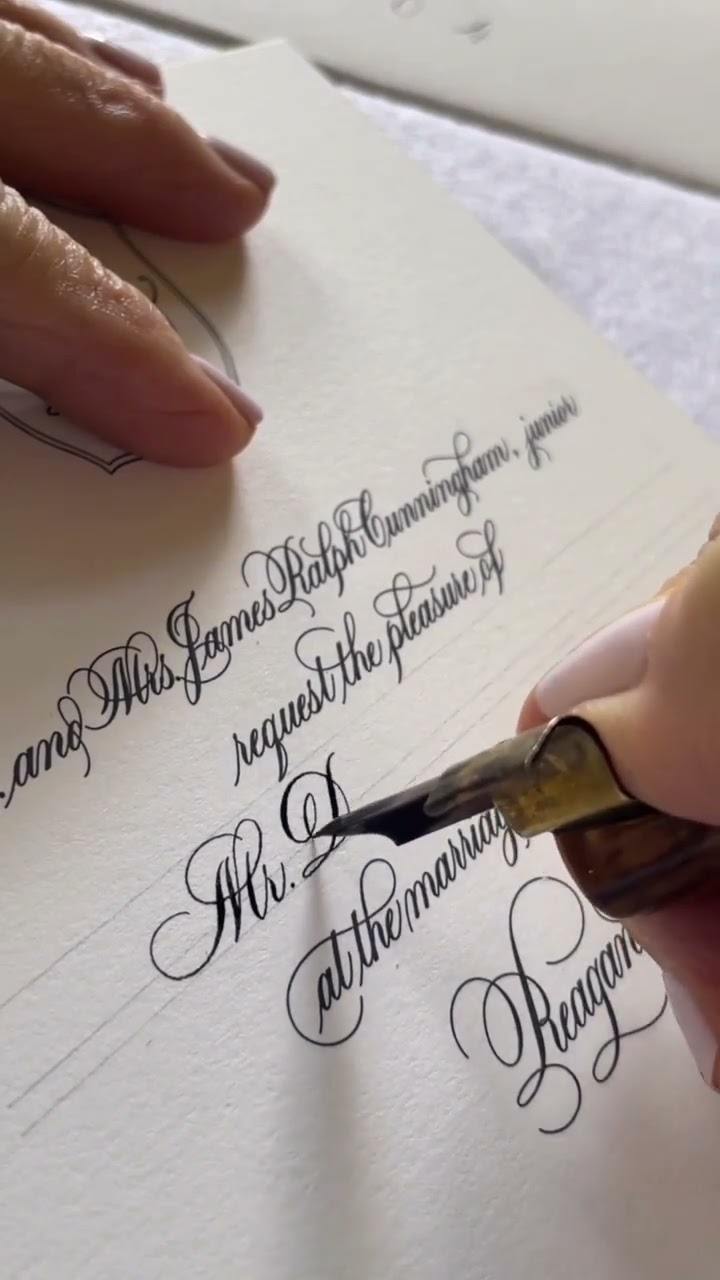 and Mrs. James Ralph Cunningham, junior
request the pleasure of
Mr. D
at the marriag
Reagan